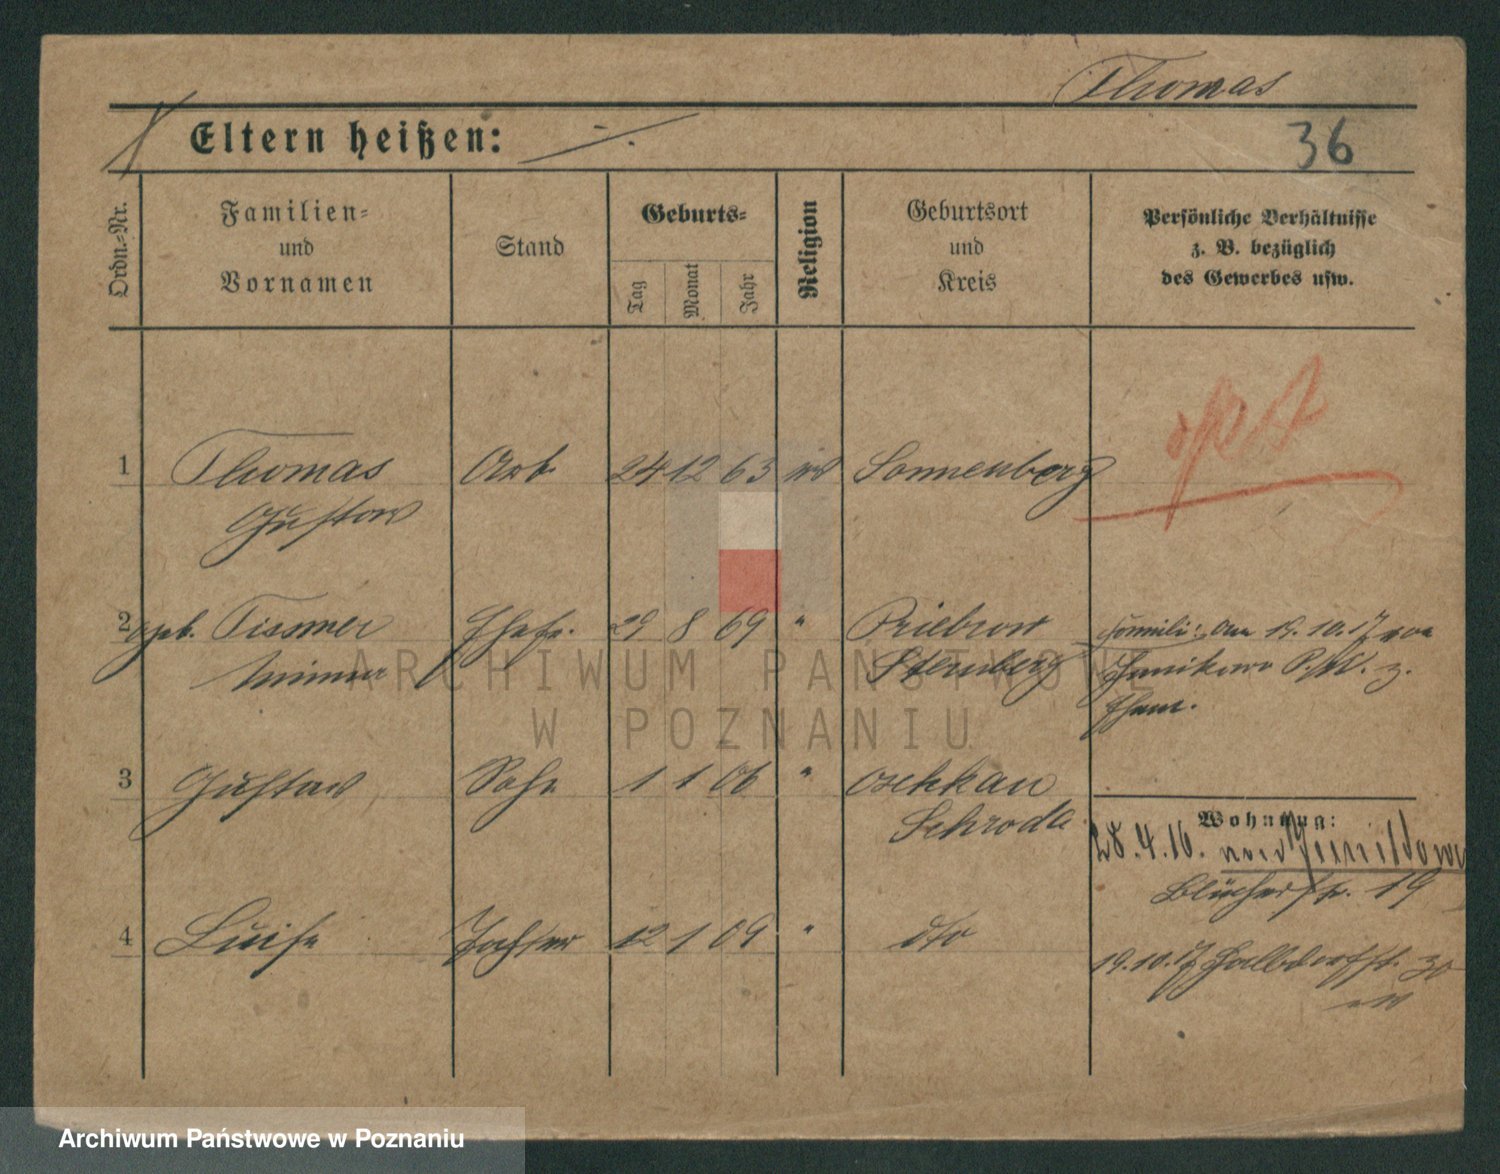 Thomas
Eltern heißen: ./.
36
Ordn.=Nr.
Familien=
und
Vornamen
Stand
Geburts=
Tag
Monat
Jahr
Religion
Geburtsort
und
Kreis
Persönliche Verhältnisse
z. B. bezüglich
des Gewerbes usw.
1 Thomas Arb. 24 12 63 ev Sonnenberg
Gustav
2 geb. Tismer Ehefr. 29 8 69 " Priebrow
Minna Sternberg
Famili: am 19. 10. 17 von
P.W. z.
3 Gustav Sohn 1 1 06 "
Schroda
Wohnung:
28. 4. 16.
Blücherstr. 19
4 Luise Tochter 12 1 09 " dto
19. 10. 17 Halbdorfstr. 30
ARCHIWUM PAŃSTWOWE
W POZNANIU
Archiwum Państwowe w Poznaniu